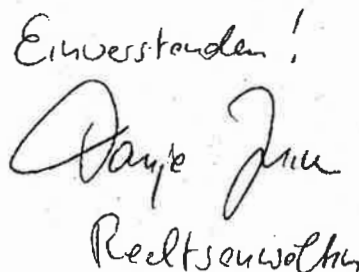 Einverstanden!
Tanja
Rechtsanwältin